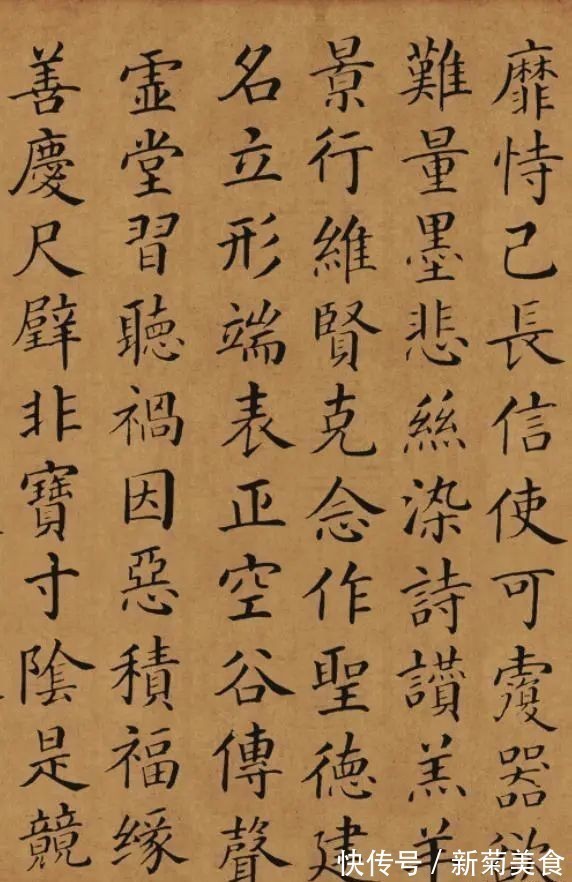 靡恃己長信使可覆器欲
難量墨悲絲染詩讚羔羊
景行維賢克念作聖德建
名立形端表正空谷傳聲
虛堂習聽禍因惡積福緣
善慶尺璧非寶寸陰是競
快传号/新菊美食